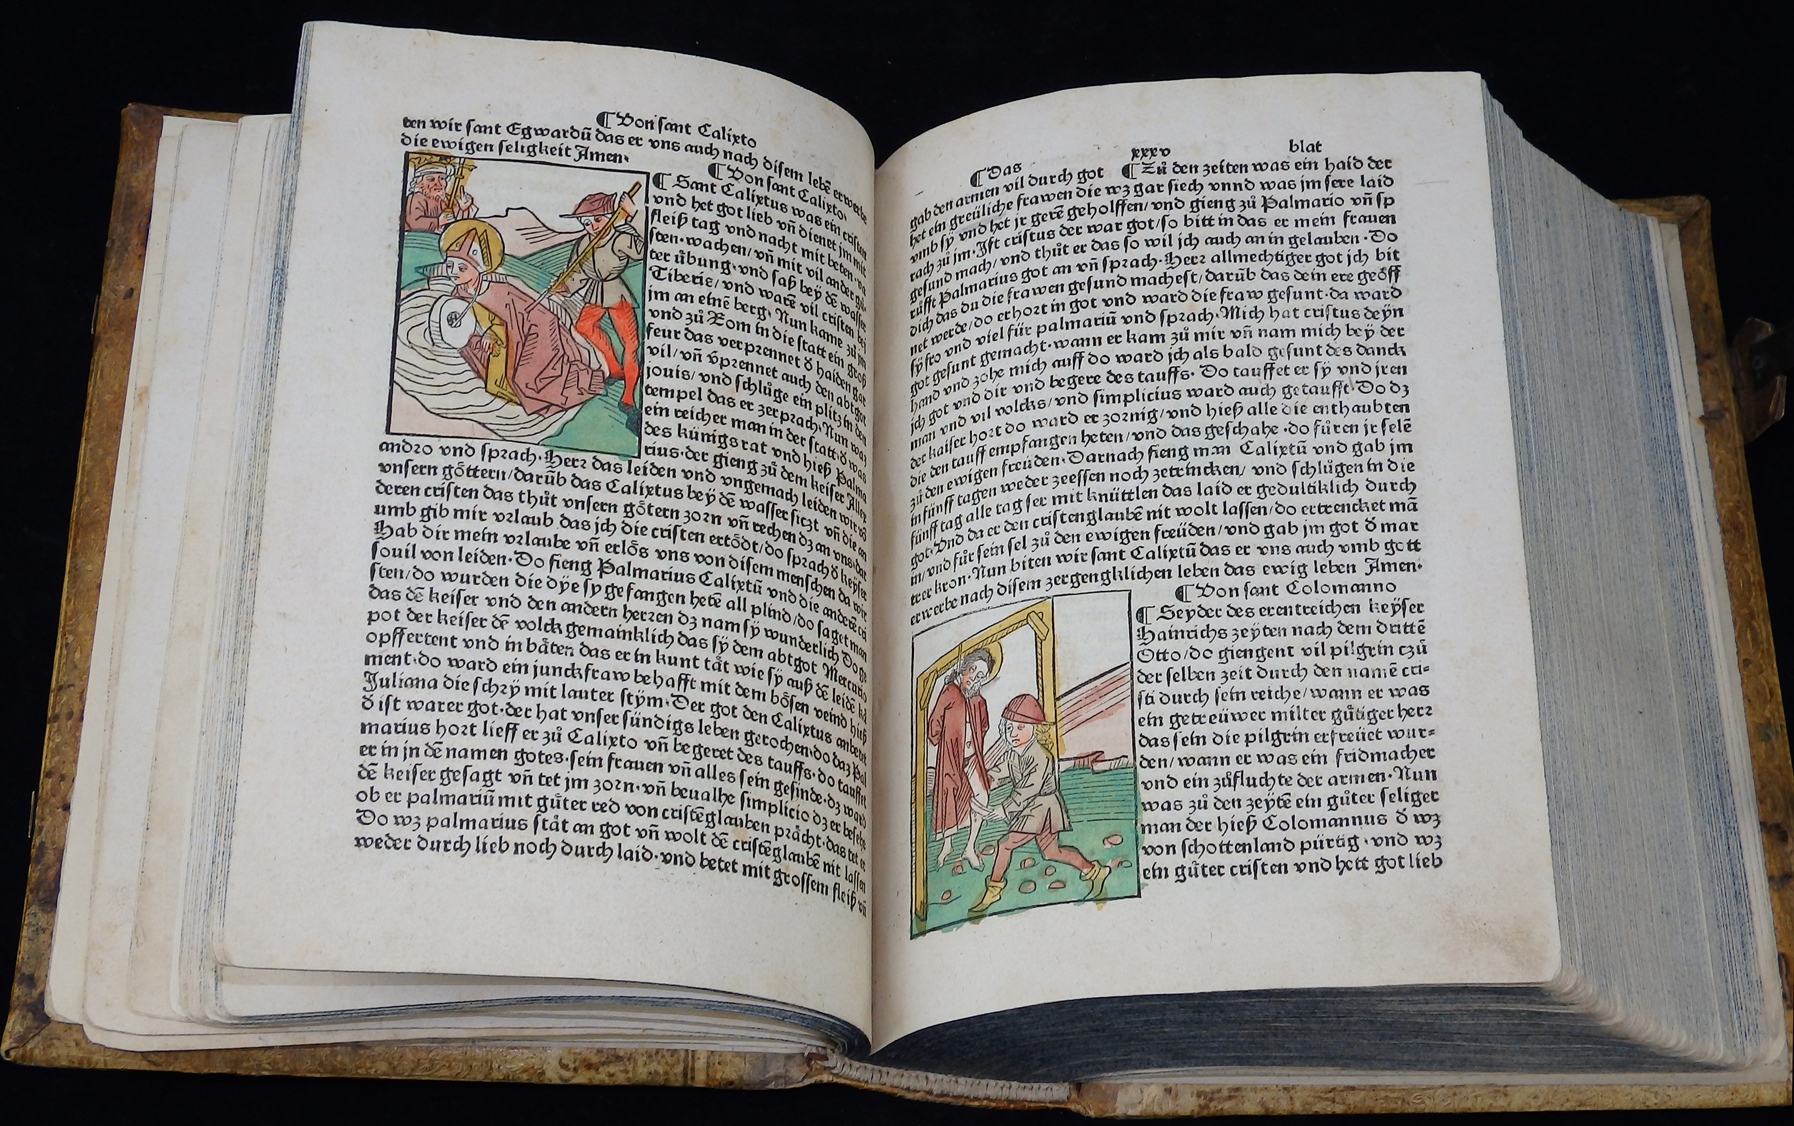 ¶Von sant Calixto
ten wir sant Egwardū das er vns auch nach disem lebē erwerbe
die ewigen seligkeit Amen·
¶Von sant Calixto·
¶ Sant Calixtus was ein cristen
vnd het got lieb vñ dienet jm mit
fleiß tag vnd nacht mit beten·
sten·wachen/vñ mit vil ander gůt
ter übung·vnd saß bey dē wasser
Tiberis/vnd warē vil cristen bei
jm an einē berg· Nun kame zů
vnd zů Rom in die statt ein groß
feur das verprennet d̕ haiden
vil/vñ v̕prennet auch den abtgot
jouis/vnd schlůge ein plitz in den
tempel das er zerprach·Nun was
ein reicher man in der statt·d̕ was
des künigs rat vnd hieß Palma
rius·der gieng zů dem keiser Allex
andro vnd sprach·Herr das leiden vnd vngemach leiden wir vō
vnsern göttern/darūb das Calixtus bey dē wasser sitzt vñ die an
deren cristen das thůt vnsern götern zorn vñ rechen dz an vns·dar
umb gib mir vrlaub das jch die cristen ertödt/do sprach d̕ keyser
Hab dir mein vrlaube vñ erlös vns von disem menschen da wir
souil von leiden·Do fieng Palmarius Calixtū vnd die anderē cri
sten/do wurden die dye sy gefangen hetē all plind/do saget man
das dē keiser vnd den andern herren dz nam sÿ wunderlich Do ge
pot der keiser dē volck gemainklich das sÿ dem abtgot Mercurio
opffertent vnd in bäten das er in kunt tät wie sÿ auß dē leidē kā
ment·do ward ein junckfraw behafft mit dem bösen veind hieß
Juliana die schrÿ mit lauter stym·Der got den Calixtus anbetet
d̕ ist warer got·der hat vnser sündigs leben gerochen·do daz Pal
marius hort lieff er zů Calixto vñ begeret des tauffs·do tauffet
er in jn dē namen gotes·sein frauen vñ alles sein gesinde·dz ward
dē keiser gesagt vñ tet jm zorn·vñ beualhe simplicio dz er besehe
ob er palmariū mit gůter red von cristēglauben prächt·das tet er
Do wz palmarius stät an got vñ wolt dē cristēglaubē nit lassen
weder durch lieb noch durch laid·vnd betet mit grossem fleiß vñ
¶Das xxxv blat
gab den armen vil durch got ¶Zů den zeiten was ein haid der
het ein greüliche frawen die wz gar siech vnnd was jm sere laid
vmb sÿ vnd het jr gerē geholffen/vnd gieng zů Palmario vñ sp
rach zů jm·Ist cristus der war got/so bitt in das er mein frauen
gesund mach/vnd thůt er das so wil jch auch an in gelauben·Do
růfft Palmarius got an vñ sprach·Herr allmechtiger got jch bit
dich das du die frawen gesund machest/darūb das dein ere geöff
net werde/do erhort in got vnd ward die fraw gesunt·da ward
sÿ fro vnd viel für palmariū vnd sprach·Mich hat cristus deÿn
got gesunt gemacht·wann er kam zů mir vñ nam mich beÿ der
hand vnd zohe mich auff do ward jch als bald gesunt des danck
jch got vnd dir vnd begere des tauffs·Do tauffet er sÿ vnd jren
man vnd vil volcks/vnd simplicius ward auch getaufft·Do dz
der kaiser hort do ward er zornig/vnd hieß alle die enthaubten
die den tauff empfangen heten/vnd das geschahe·do fůren jr selē
zů den ewigen freuden·Darnach fieng man Calixtū vnd gab jm
in fünff tagen weder zeessen noch zetrincken/vnd schlůgen in die
fünff tag alle tag ser mit knüttlen das laid er gedultiklich durch
got·Vnd da er den cristenglaubē nit wolt lassen/do ertrencket mā
in/vnd fůr sein sel zů den ewigen freüden/vnd gab jm got d̕ mar
trer kron·Nun biten wir sant Calixtū das er vns auch vmb gott
erwerbe nach disem zergengklichen leben das ewig leben Amen·
¶Von sant Colomanno
¶ Seyder des erentreichen keÿser
Hainrichs zeÿten nach dem drittē
Otto/do giengent vil pilgrin czů
der selben zeit durch den namē cri-
sti durch sein reiche/wann er was
ein getreüwer milter gůtiger herr
das sein die pilgrin erfreüet wur-
den/wann er was ein fridmacher
vnd ein zůfluchte der armen·Nun
was zů den zeÿtē ein gůter seliger
man der hieß Colomannus d̕ wz
von schottenland pürtig·vnd wz
ein gůter cristen vnd hett got lieb